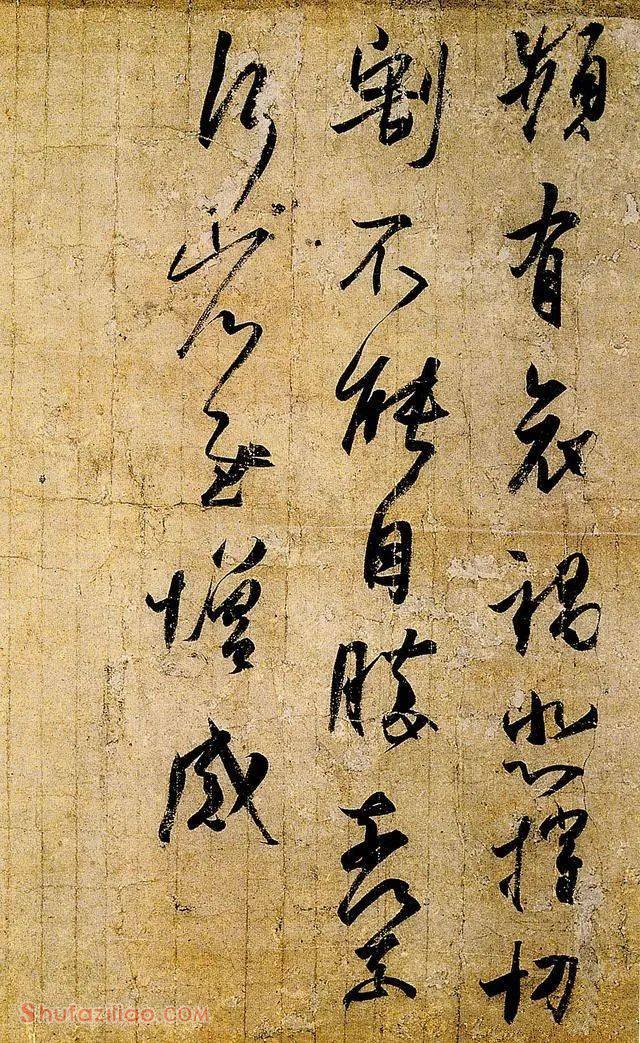 頻有哀禍悲摧切
割不能自勝奈何奈
何省慰增感
Shufaziliao.com